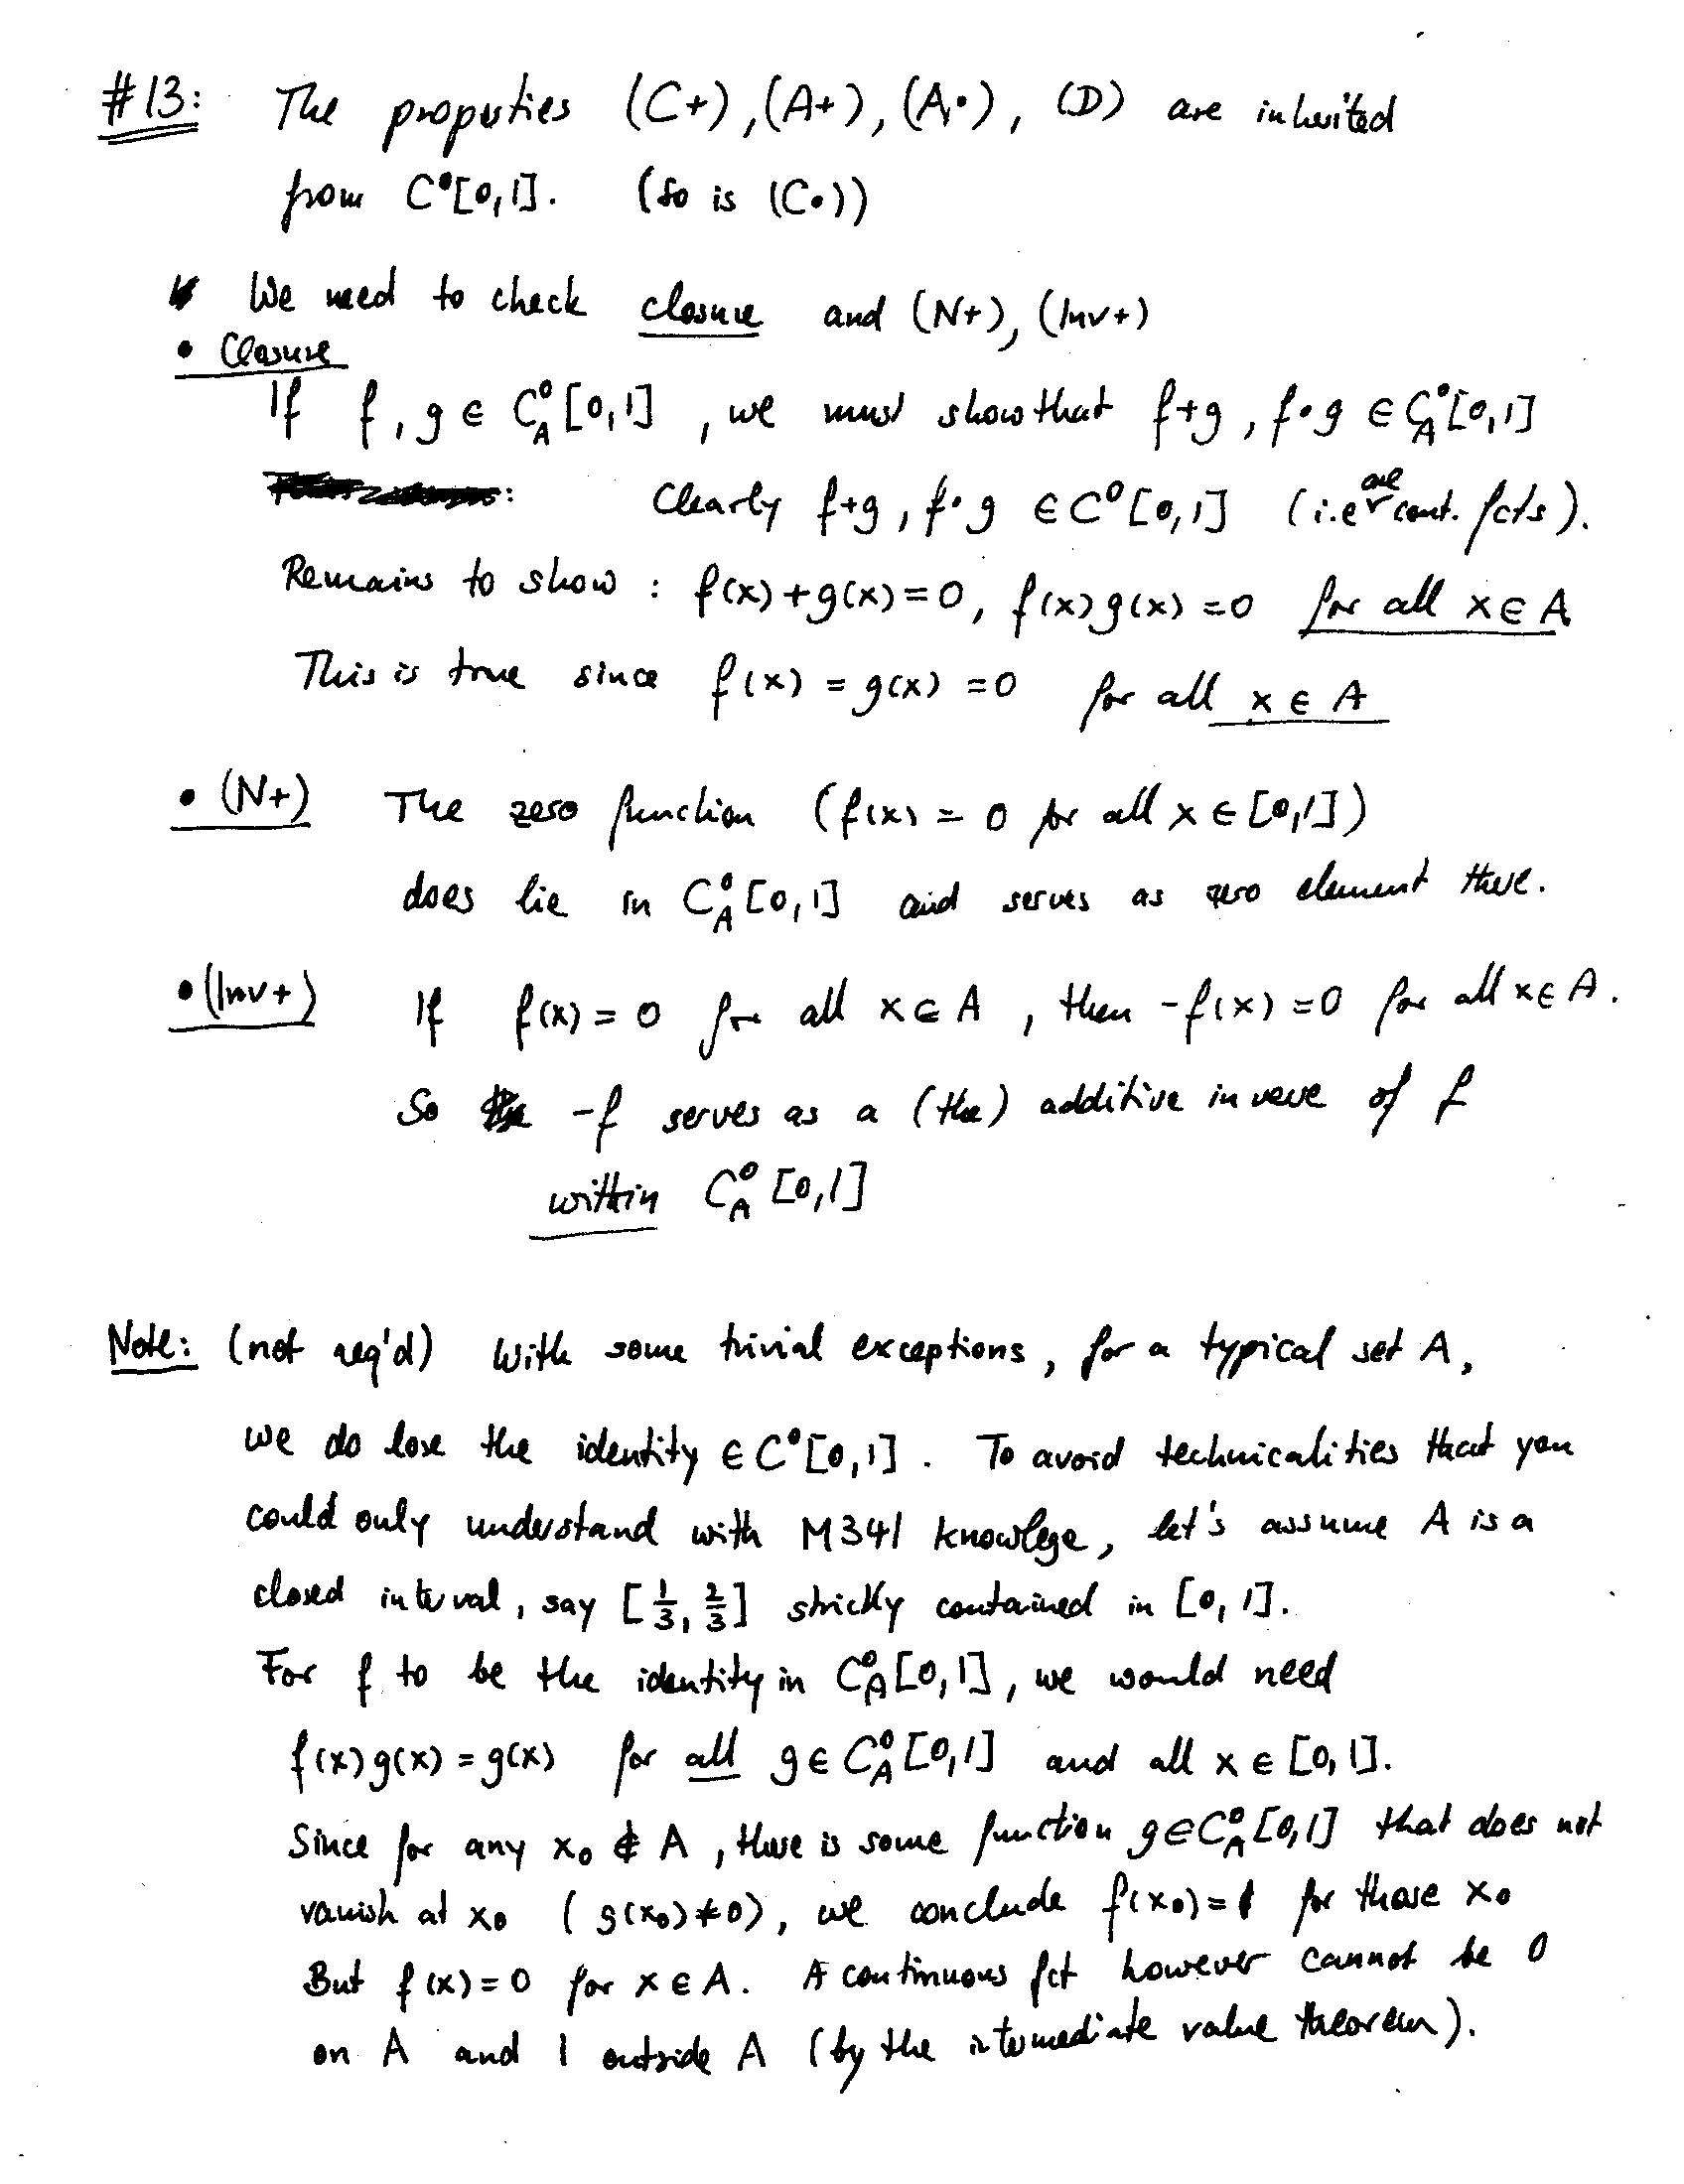 #13: The properties (C+), (A+), (A•), (D) are inherited
from C⁰[0,1]. (So is (C•))
We need to check closure and (N+), (Inv+)
• Closure
If f, g ∈ C⁰_A[0,1], we must show that f+g, f•g ∈ C⁰_A[0,1]
Clearly f+g, f•g ∈ C⁰[0,1] (i.e are cont. fcts).
Remains to show: f(x)+g(x)=0, f(x)g(x)=0 for all x∈A
This is true since f(x) = g(x) = 0 for all x ∈ A
• (N+) The zero function (f(x) = 0 for all x ∈ [0,1])
does lie in C⁰_A[0,1] and serves as zero element there.
• (Inv+) If f(x) = 0 for all x∈A, then -f(x) = 0 for all x∈A.
So -f serves as a (the) additive inverse of f
within C⁰_A[0,1]
Note: (not req'd) With some trivial exceptions, for a typical set A,
we do lose the identity ∈ C⁰[0,1]. To avoid technicalities that you
could only understand with M341 knowlege, let's assume A is a
closed interval, say [1/3, 2/3] strictly contained in [0,1].
For f to be the identity in C⁰_A[0,1], we would need
f(x)g(x) = g(x) for all g∈C⁰_A[0,1] and all x ∈ [0,1].
Since for any x₀ ∉ A, there is some function g∈C⁰_A[0,1] that does not
vanish at x₀ (g(x₀)≠0), we conclude f(x₀)=1 for those x₀
But f(x)=0 for x∈A. A continuous fct however cannot be 0
on A and 1 outside A (by the intermediate value theorem).